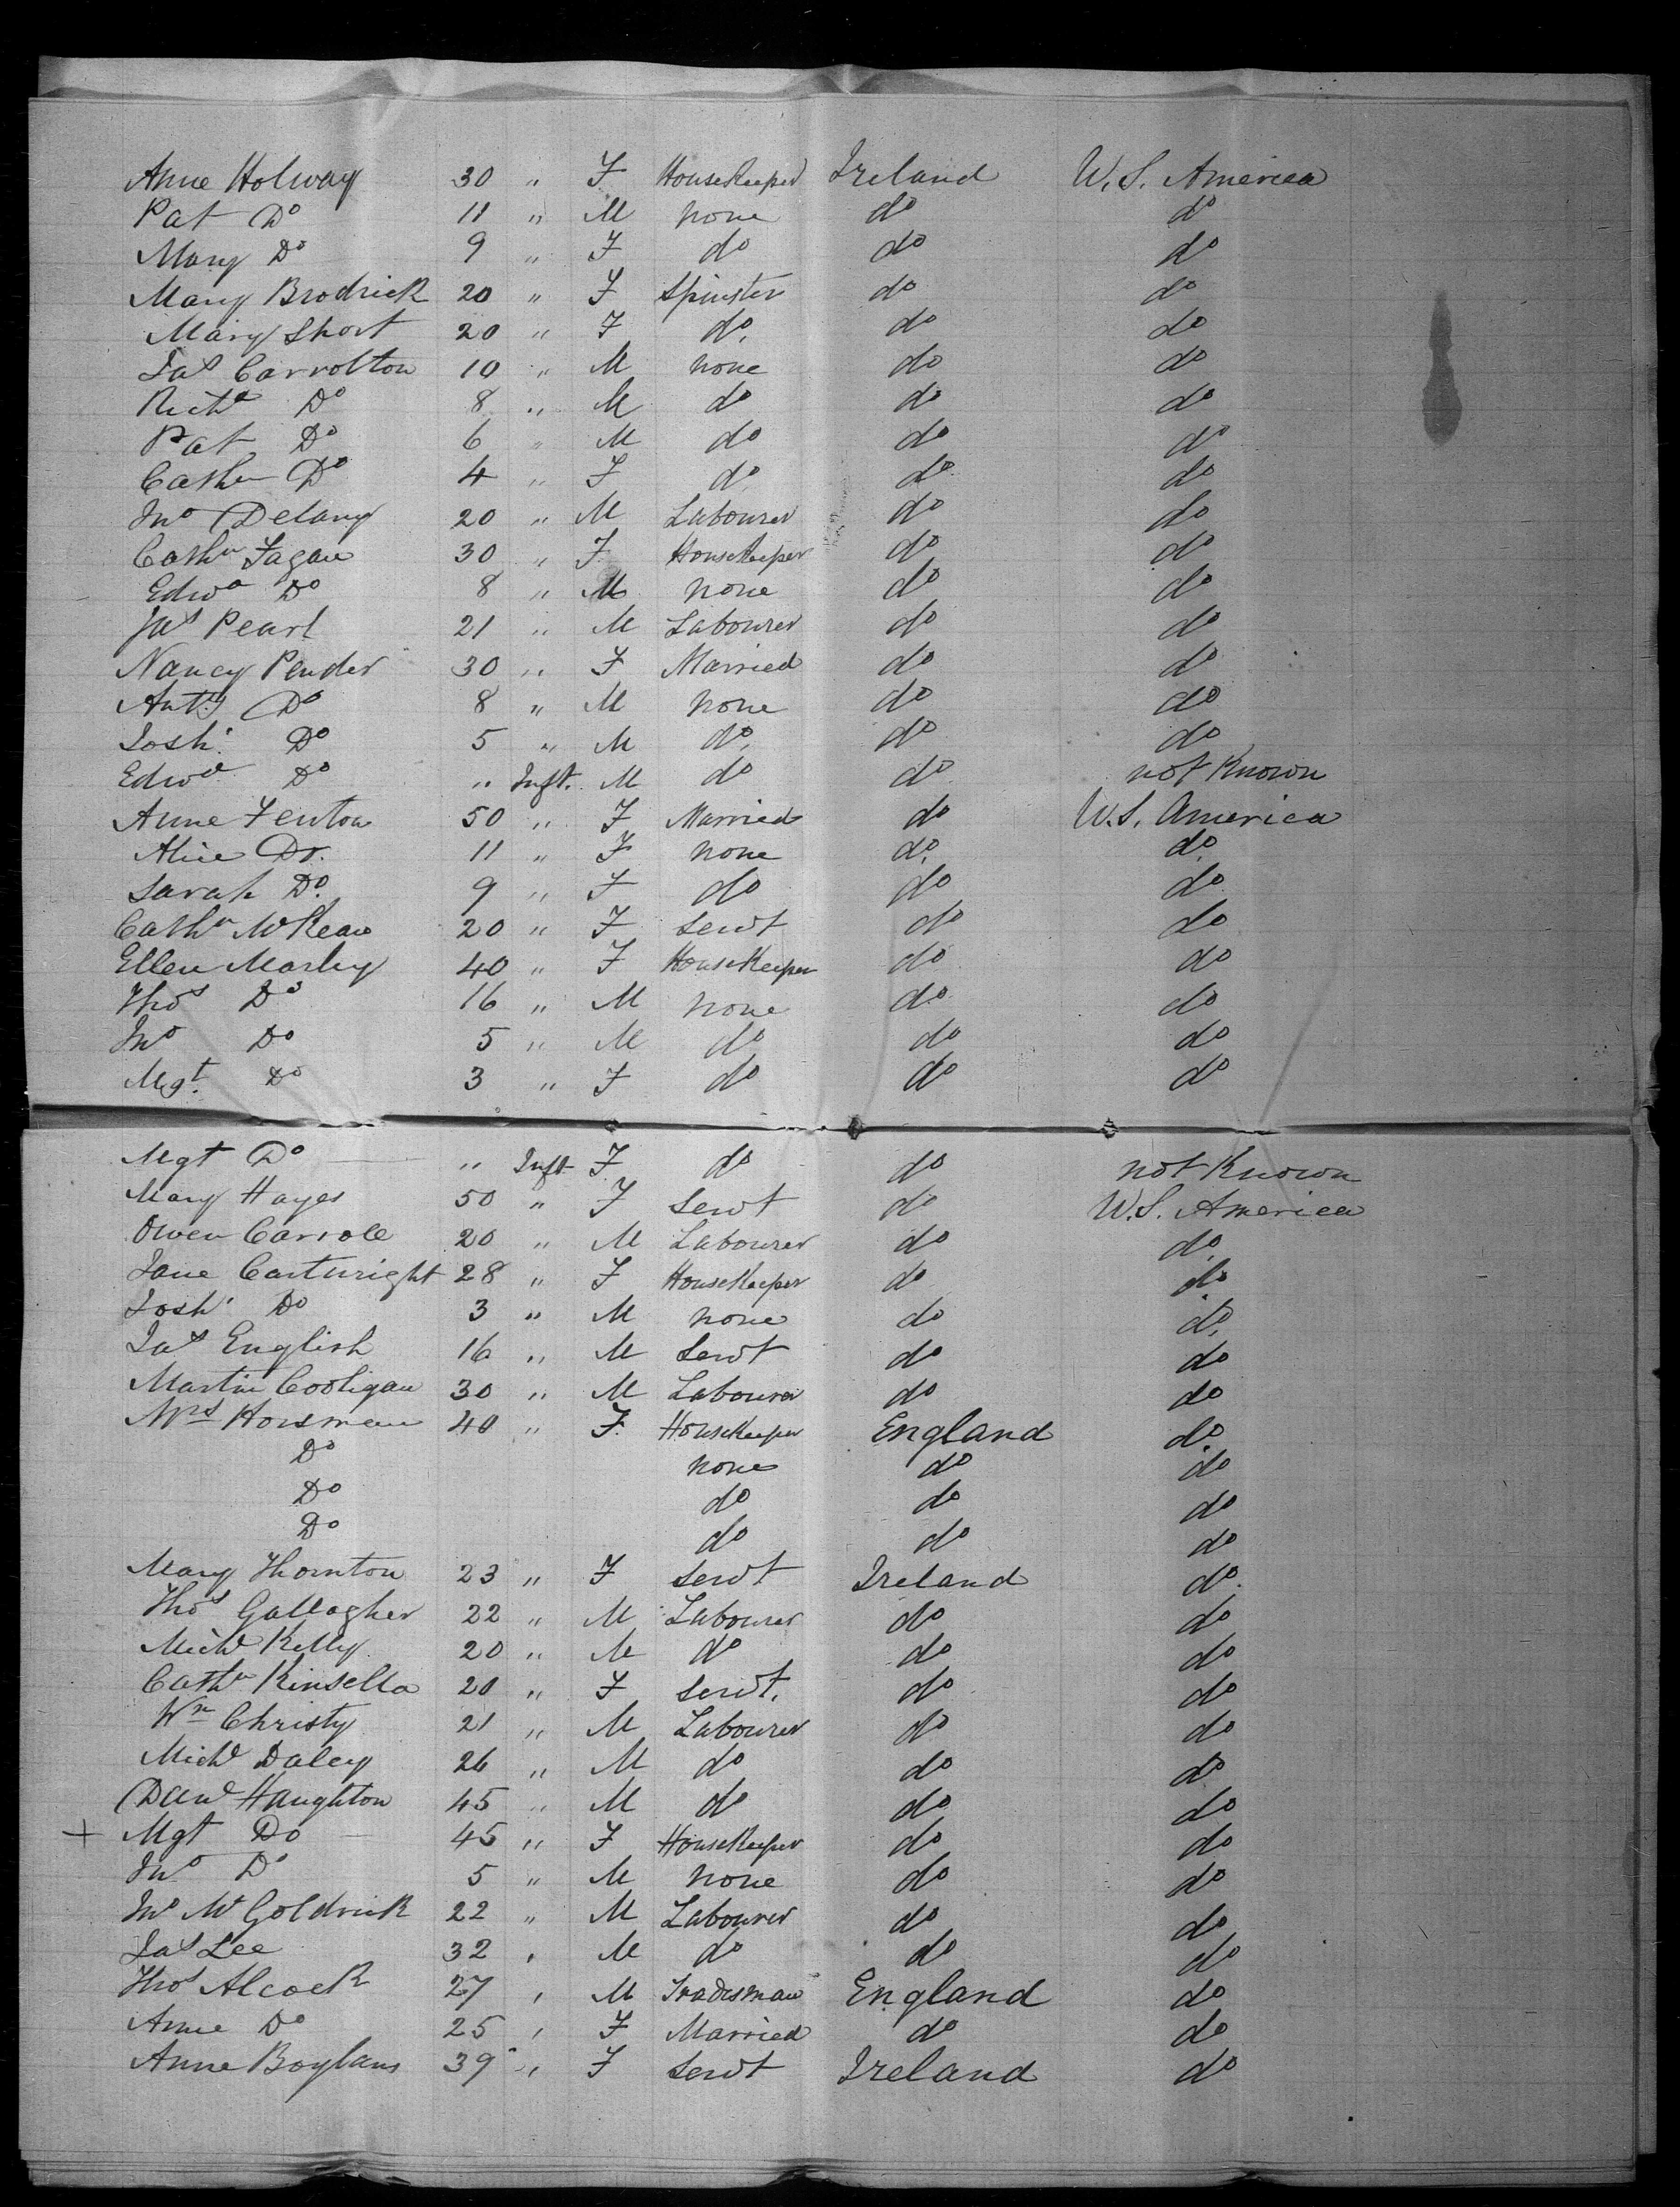 Anne Holway 30 " F HouseKeeper Ireland U.S. America
Pat Do 11 " M none do do
Mary Do 9 " F do do do
Mary Brodrick 20 " F Spinster do do
Mary Short 20 " F do. do do
Jas Carrolton 10 " M none do do
Richd Do 8 " M do do do
Pat Do 6 " M do do do
Cathn Do 4 " F do do do
Jno Delany 20 " M Labourer do do
Cathn Fagan 30 " F HouseKeeper do do
Edwd Do 8 " M none do do
Jas Pearl 21 " M Labourer do do
Nancy Pender 30 " F Married do do
Anty Do 8 " M none do do
Josh. Do 5 " M do, do do
Edwd Do " Inft. M do do not Known
Anne Fenton 50 " F Married do U.S. America
Alice Do. 11 " F none do. do
Sarah Do. 9 " F do do do
Cathn McKean 20 " F Servt do do
Ellen Marley 40 " F HouseKeeper do do
Thos Do 16 " M none do do
Jno Do 5 " M do do do
Mgt. Do 3 " F do do do
Mgt Do " Inft F do do not Known
Mary Hayes 50 " F Servt do U.S. America
Owen Carrole 20 " M Labourer do do
Jane Cartwright 28 " F HouseKeeper do do
Josh. Do 3 " M none do do.
Jas English 16 " M Servt do do
Martin Cooligan 30 " M Labourer do do
Mrs Horsman 40 " F. HouseKeeper England do.
Do none do do
Do do do do
Do do do do
Mary Thornton 23 " F Servt Ireland do.
Thos Gallagher 22 " M Labourer do do
Michl Kelly 20 " M do do do
Cathn Kinsella 20 " F Servt. do do
Wm Christy 21 " M Labourer do do
Michl Daley 26 " M do do do
Danl Haughton 45 " M do do do
+ Mgt Do 45 " F HouseKeeper do do
Jno Do 5 " M none do do
Jno McGoldrick 22 " M Labourer do do
Jas Lee 32 , M do do do
Thos Alcock 27 , M Tradesman England do
Anne Do 25 , F Married do do
Anne Boylans 39 " F Servt Ireland do